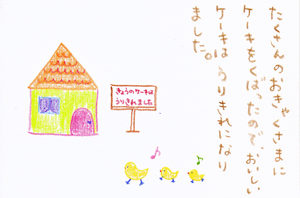 たくさんのおきゃくさまに
ケーキをくばったので、おいしい
ケーキはうりきれになり
ました。
きょうのケーキは
うりきれました